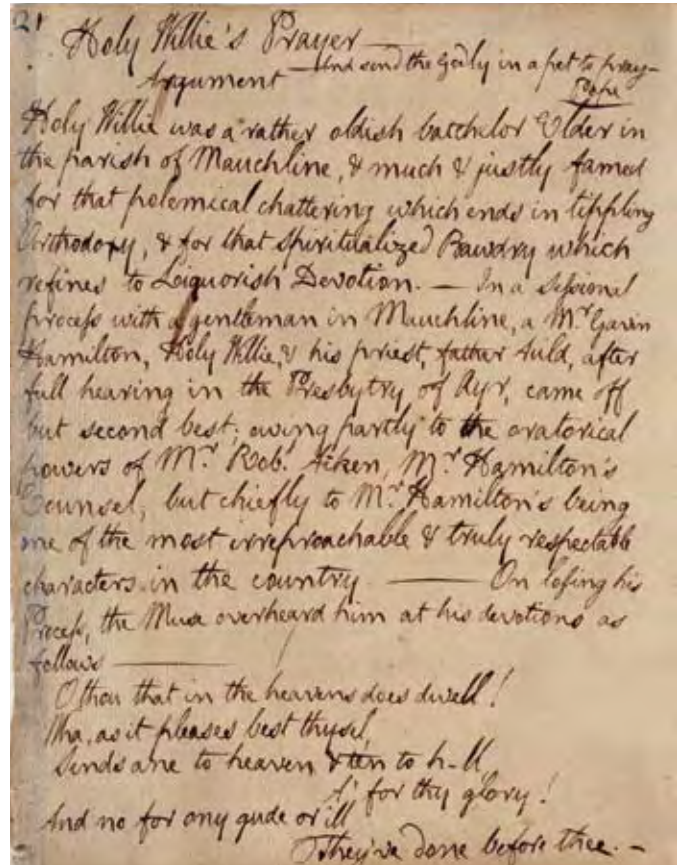 21
Holy Willie's Prayer —
Argument — And send the Godly in a pet to pray —
Pope
Holy Willie was a rather oldish batchelor Elder in
the parish of Mauchline, & much & justly famed
for that polemical chattering which ends in tippling
Orthodoxy, & for that Spiritualized Bawdry which
refines to Liquorish Devotion. — In a Sessional
process with a gentleman in Mauchline, a Mr. Gavin
Hamilton, Holy Willie, & his priest, father Auld, after
full hearing in the Presbytry of Ayr, came off
but second best; owing partly to the oratorical
powers of Mr. Robt. Aiken, Mr. Hamilton's
Counsel; but chiefly to Mr. Hamilton's being
one of the most irreproachable & truly respectable
characters in the country — On losing his
Process, the Muse overheard him at his devotions as
follows —
O thou that in the heavens does dwell!
Wha, as it pleases best thysel,
Sends ane to heaven & ten to h-ll,
A' for thy glory!
And no for any gude or ill
They've done before thee. —